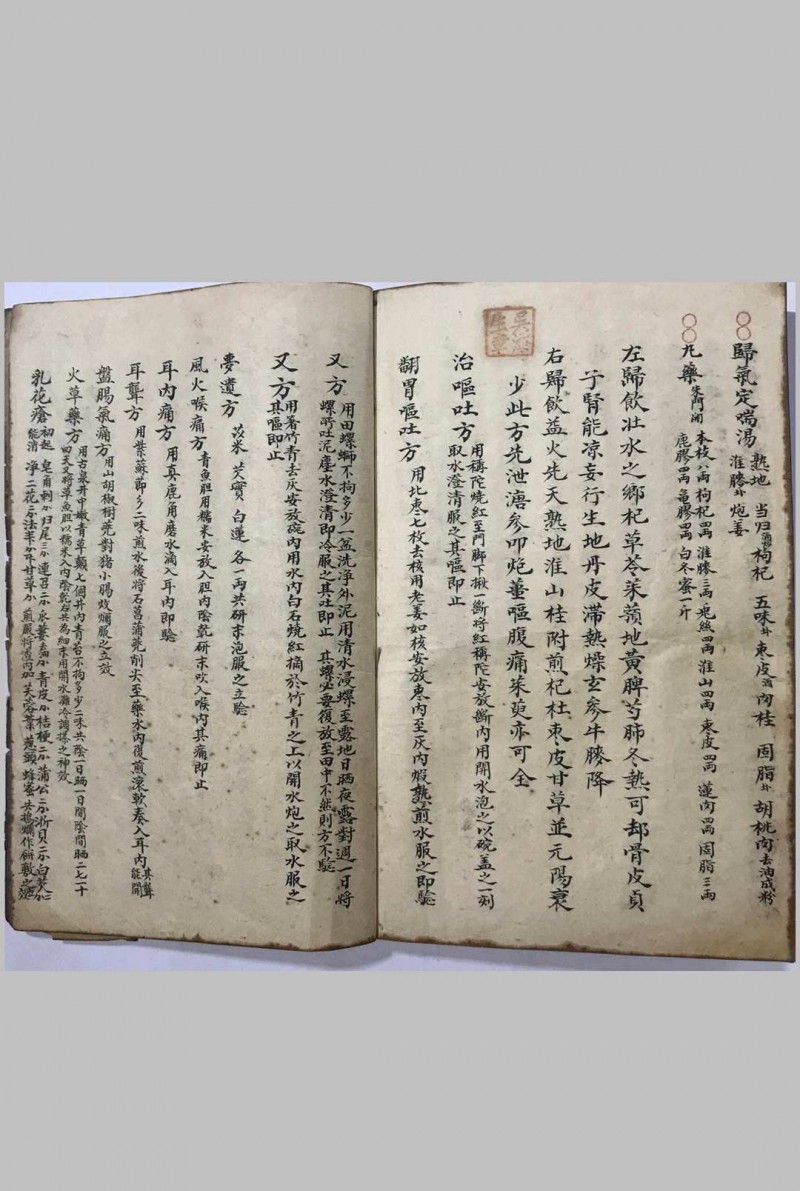 歸氣定喘湯 熟地 当归 枸杞 五味 枣皮 肉桂 固脂 胡桃肉去油成粉
淮膝 炮姜
九藥 朱門閙 本枝八両 枸杞四両 淮膝三両 兎絲四両 淮山四両 枣皮四両 蓮肉四両 固脂三両
鹿膠四両 龟膠四両 白冬蜜一斤
左歸飲壯水之鄉杞草苓茱蕷地黄脾芍肺冬熱可却骨皮貞
子腎能凉妄行生地丹皮滞熱燥玄參牛膝降
右歸飲益火先天熟地淮山桂附煎杞杜枣皮甘草並元陽衰
少此方先泄瀉參叩炮薑嘔腹痛茱萸亦可全
治嘔吐方 用称陀燒紅至門脚下揪一断将紅稱陀安放断内用開水泡之以碗盖之一刻
取水澄清服之其嘔即止
翻胃嘔吐方 用北枣七枚去核用老姜如核安放枣内至灰内煆熟煎水服之即騐
又方 用田螺螄不拘多少一盆洗净外泥用清水浸螺至露地日晒夜露對週一日将
螺所吐泥塵水澄清即冷服之其吐即止 其螺必要復放至田中不然則方不騐
又方 用箸竹青去灰安放碗内用水内白石燒紅摘於竹青之上以開水炮之取水服之
其嘔即止
夢遺方 茨米 芡實 白蓮 各一両共研末泡服之立騐
風火喉痛方 青魚胆用糯米安放入胆内陰乾研末吹入喉内其痛即止
耳内痛方 用真鹿角磨水滴入耳内即騐
耳聾方 用紫蘇節多二味煎水後将石菖蒲蔸削尖至藥水内復煎滚軟奏入耳内 其聾
能開
盤腸氣痛方 用山胡椒樹蔸對猪小腸炆爛服之立效
火草藥方 用古泉井中嫩青草顛七個井内青苔不拘多少二味共陰一日晒一日間陰間晒二七一十
四天又将草魚胆以糯米入内陰乾右共為細末用開水灘冷調搽之神效
乳花瘡 初起 皂角刺 归尾三 連召二 氷葉 青皮 桔梗二 蒲公二 浙貝二 白芷
能消 净二花三 法半 甘草 煎服将渣内加芙蓉葉葱頭蜂蜜共搗爛作餅敷之